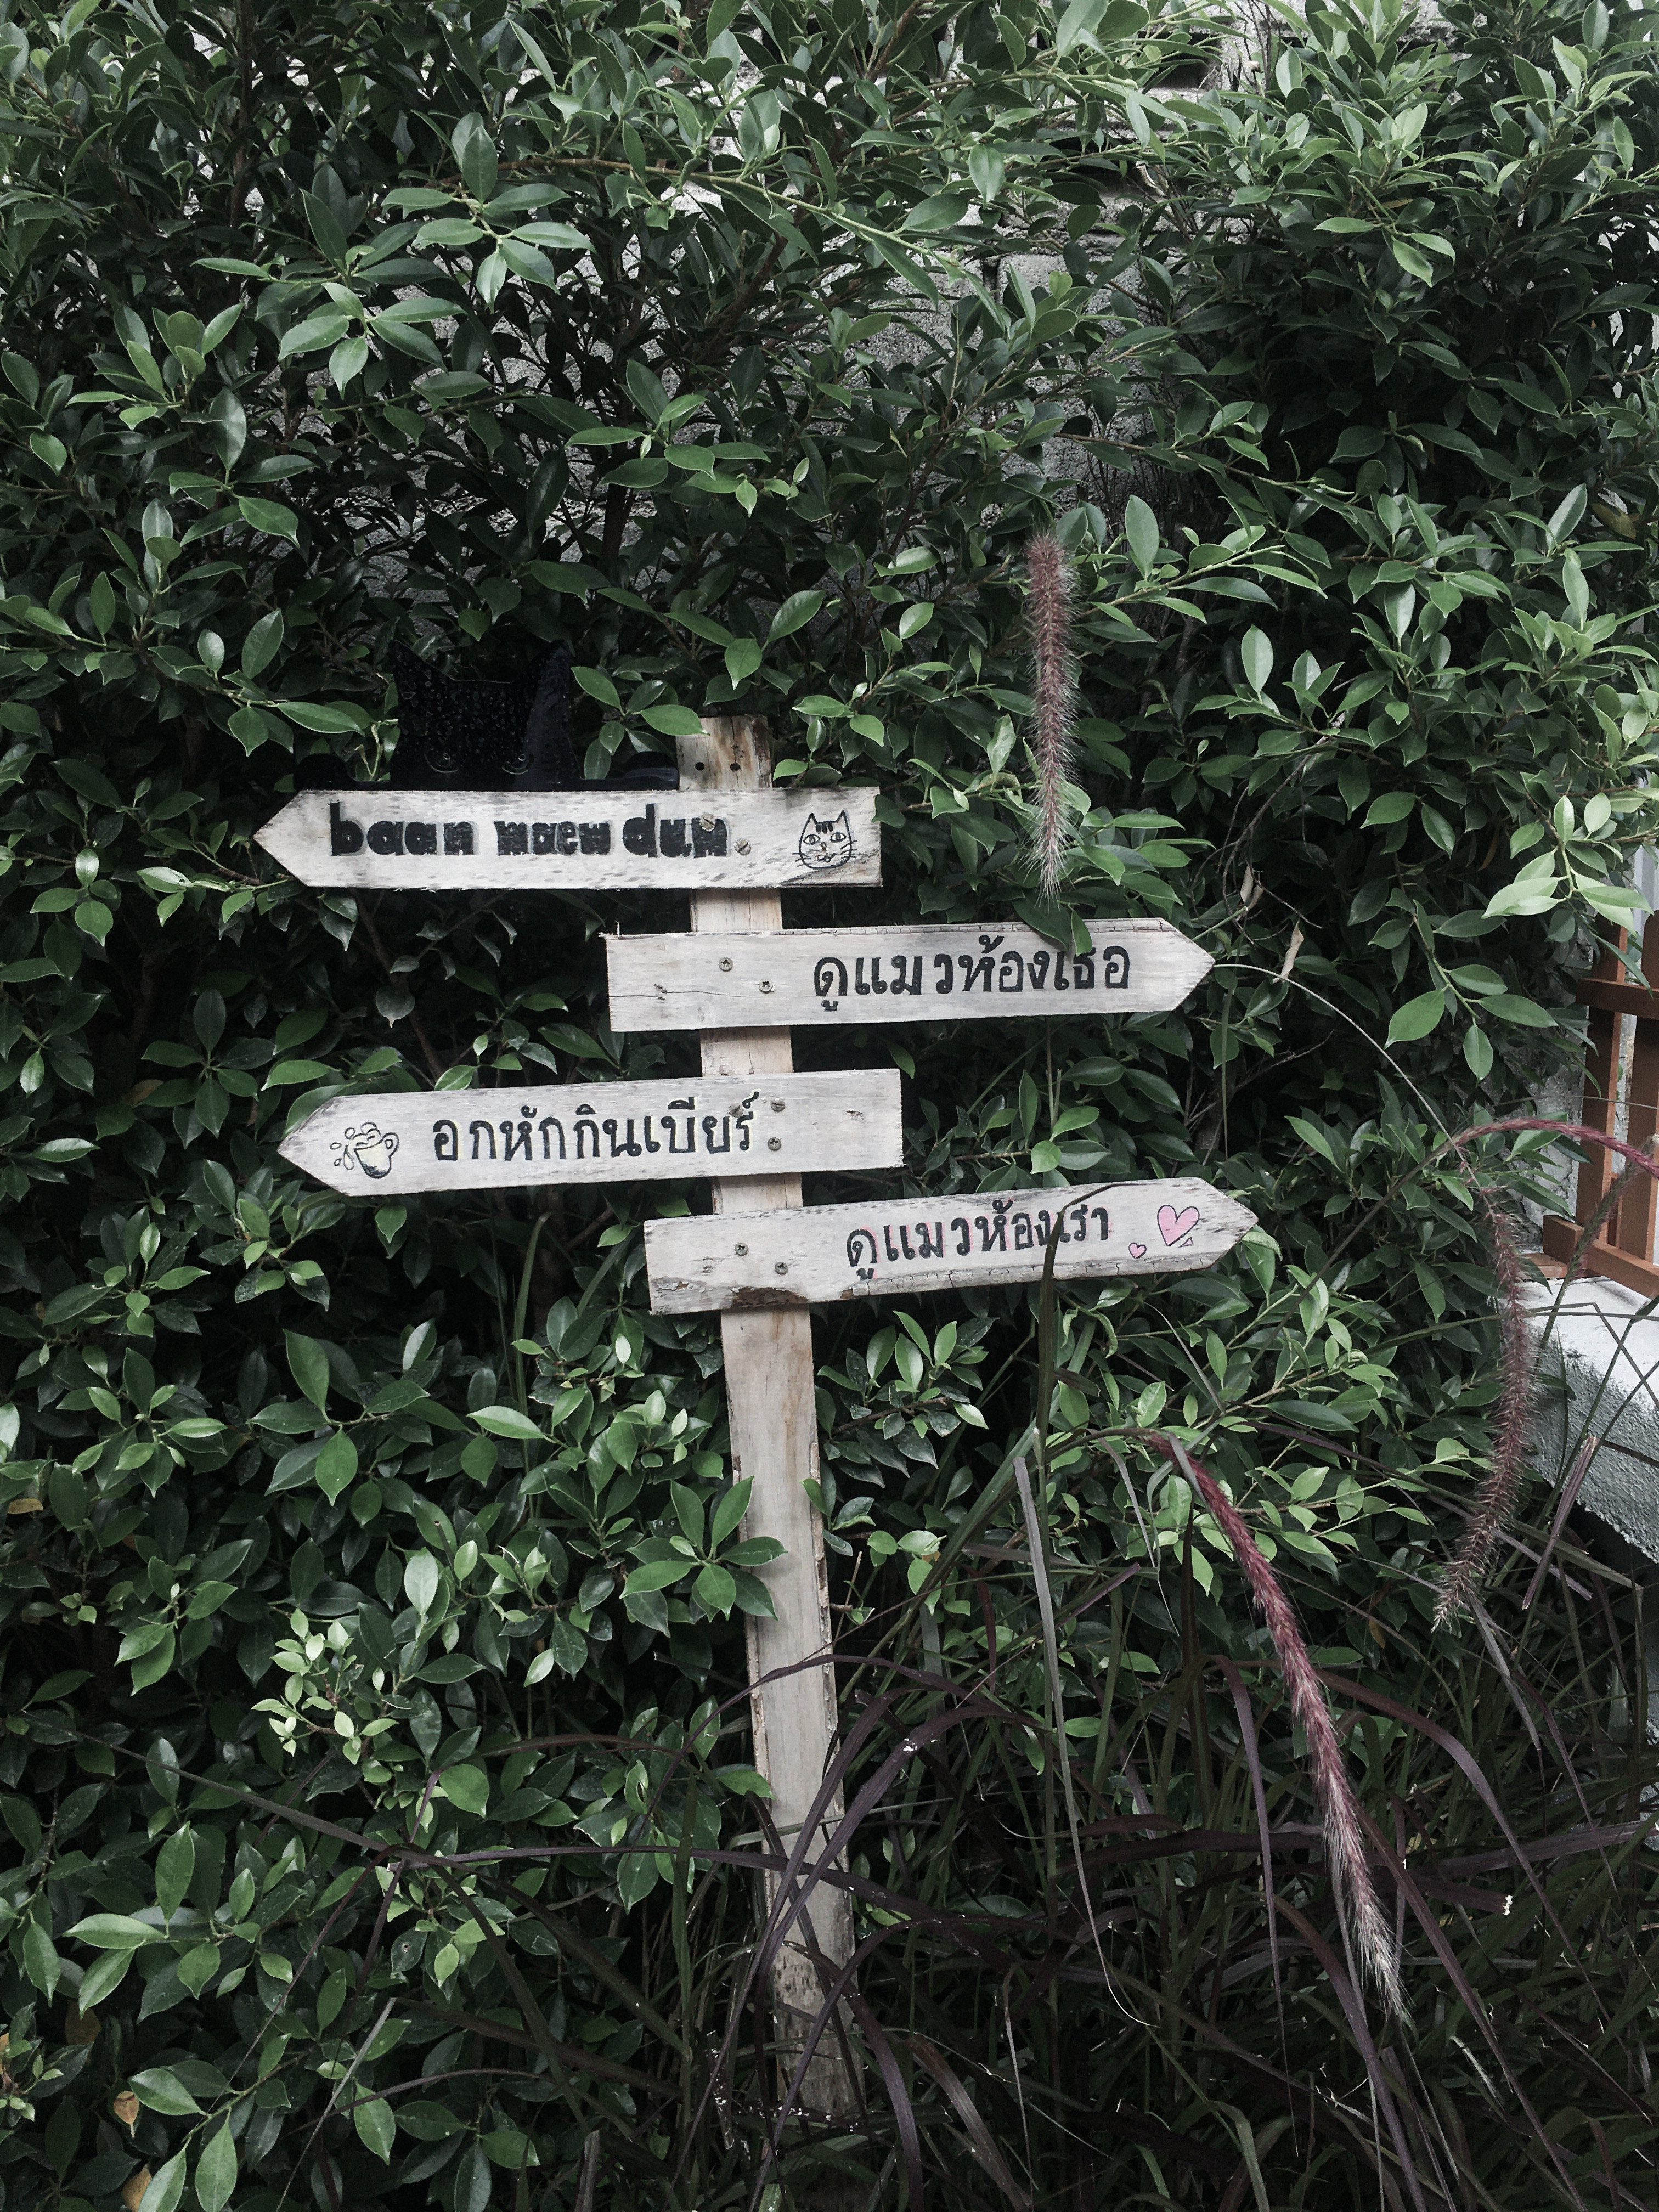 baan maew dum
ดูแมวห้องเธอ
อกหักกินเบียร์
ดูแมวห้องเรา